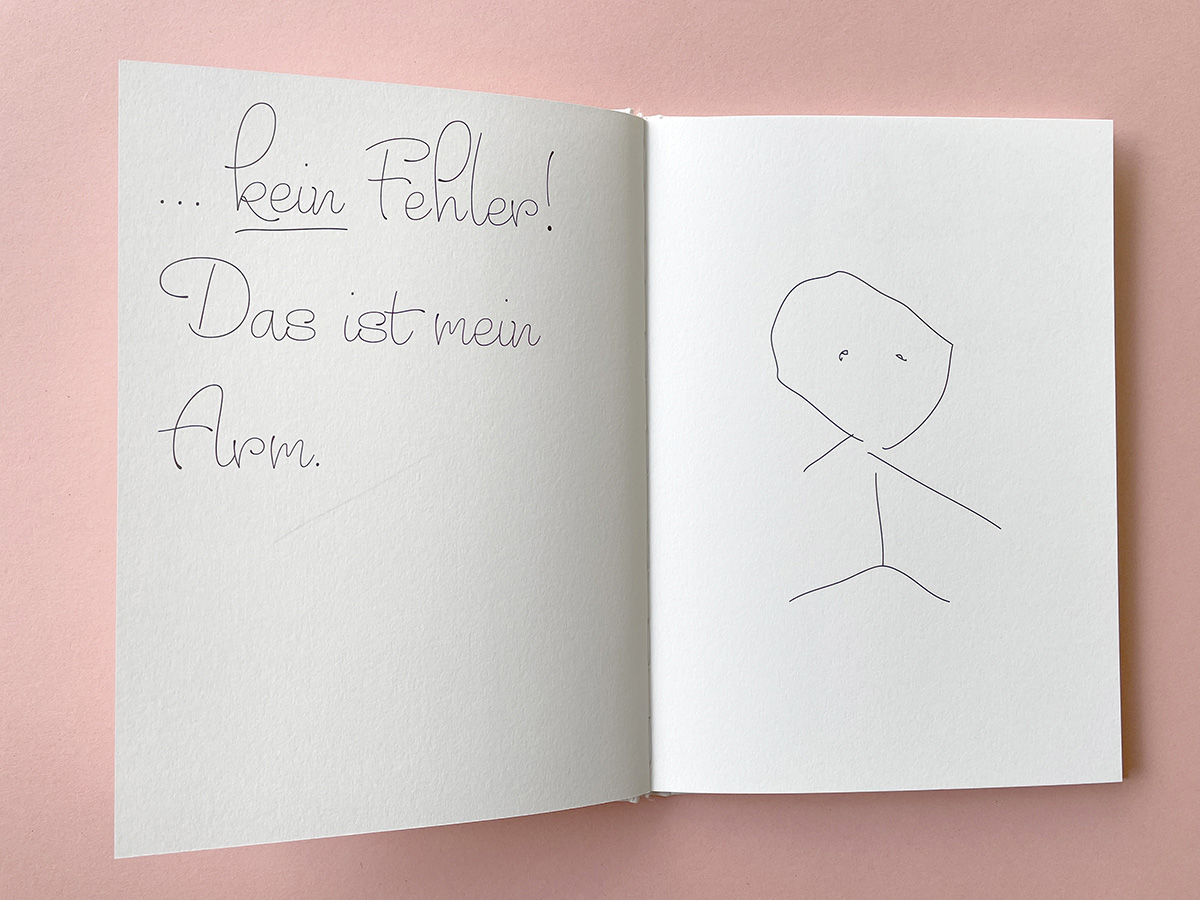 ... kein Fehler!
Das ist mein
Arm.